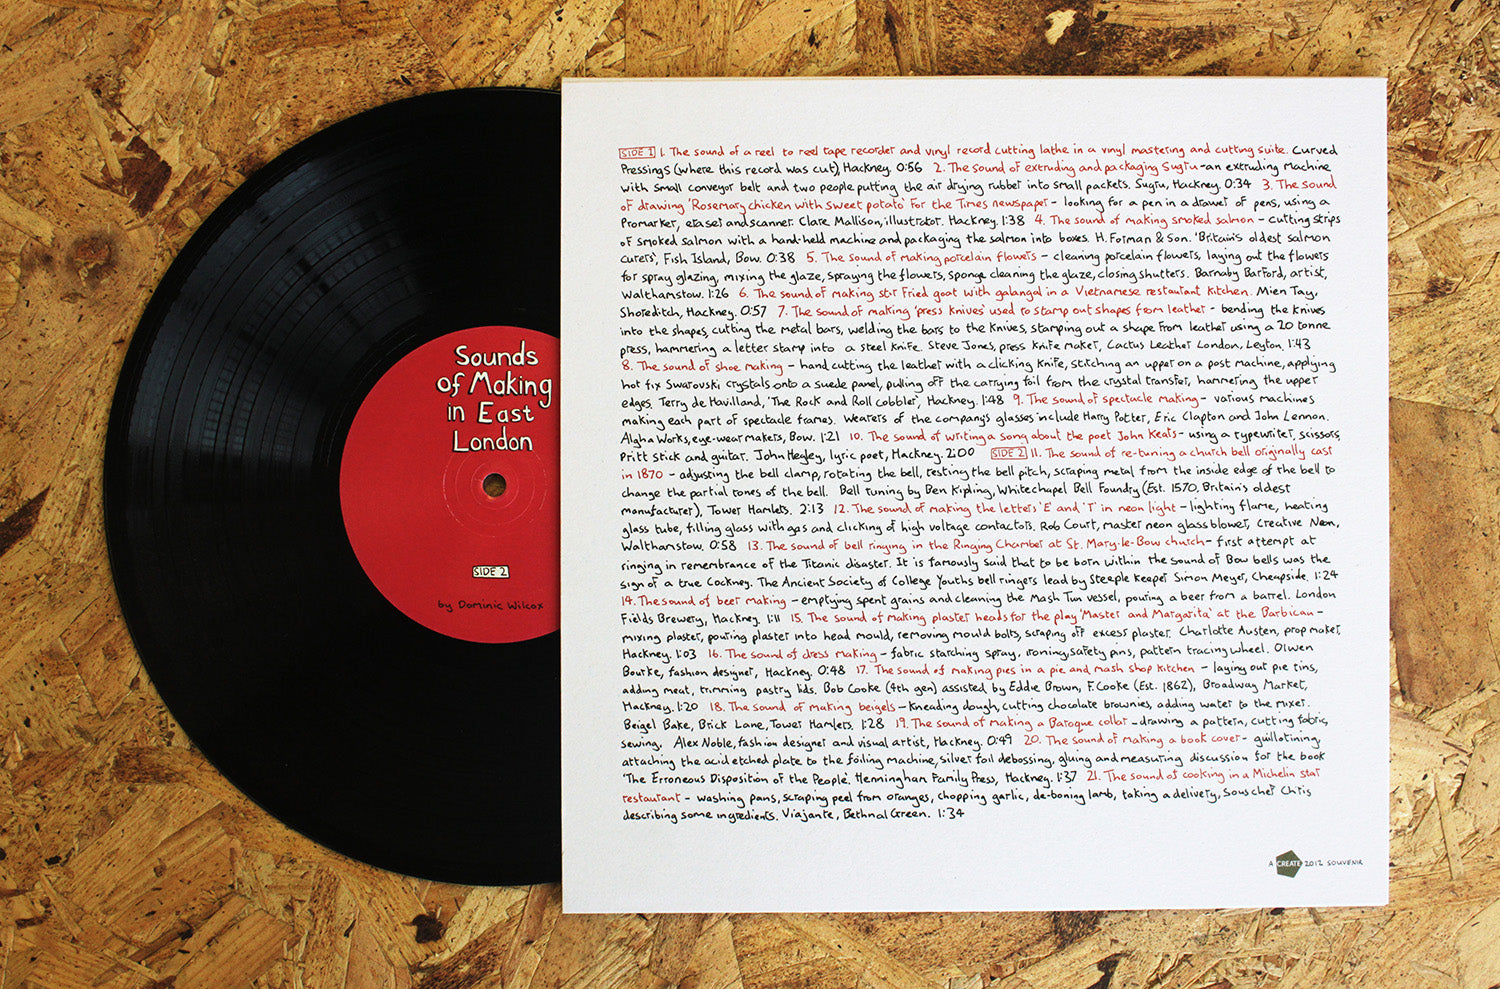 Sounds
of Making
in East
London
SIDE 2
by Dominic Wilcox
SIDE 1 1. The sound of a reel to reel tape recorder and vinyl record cutting lathe in a vinyl mastering and cutting suite. Curved
Pressings (where this record was cut), Hackney. 0:56 2. The sound of extruding and packaging Sugru - an extruding machine
with small conveyor belt and two people putting the air drying rubber into small packets. Sugru, Hackney. 0:34 3. The sound
of drawing 'Rosemary chicken with sweet potato' for the Times newspaper - looking for a pen in a drawer of pens, using a
Promarker, eraser and scanner. Clare Mallison, illustrator. Hackney. 1:38 4. The sound of making smoked salmon - cutting strips
of smoked salmon with a hand-held machine and packaging the salmon into boxes. H. Forman & Son. 'Britain's oldest salmon
curers', Fish Island, Bow. 0:38 5. The sound of making porcelain flowers - cleaning porcelain flowers, laying out the flowers
for spray glazing, mixing the glaze, spraying the flowers, sponge cleaning the glaze, closing shutters. Barnaby Barford, artist,
Walthamstow. 1:26 6. The sound of making stir fried goat with galangal in a Vietnamese restaurant kitchen. Mien Tay,
Shoreditch, Hackney. 0:57 7. The sound of making 'press knives' used to stamp out shapes from leather - bending the knives
into the shapes, cutting the metal bars, welding the bars to the knives, stamping out a shape from leather using a 20 tonne
press, hammering a letter stamp into a steel knife. Steve Jones, press knife maker, Cactus Leather London, Leyton. 1:43
8. The sound of shoe making - hand cutting the leather with a clicking knife, stitching an upper on a post machine, applying
hot fix Swarovski crystals onto a suede panel, pulling off the carrying foil from the crystal transfer, hammering the upper
edges. Terry de Havilland, 'The Rock and Roll cobbler', Hackney. 1:48 9. The sound of spectacle making - various machines
making each part of spectacle frames. Wearers of the company's glasses include Harry Potter, Eric Clapton and John Lennon.
Algha Works, eye-wear makers, Bow. 1:21 10. The sound of writing a song about the poet John Keats - using a typewriter, scissors,
Pritt stick and guitar. John Hegley, lyric poet, Hackney. 2:00 SIDE 2 11. The sound of re-tuning a church bell originally cast
in 1870 - adjusting the bell clamp, rotating the bell, testing the bell pitch, scraping metal from the inside edge of the bell to
change the partial tones of the bell. Bell tuning by Ben Kipling, Whitechapel Bell Foundry (Est. 1570, Britain's oldest
manufacturer), Tower Hamlets. 2:13 12. The sound of making the letters 'E' and 'T' in neon light - lighting flame, heating
glass tube, filling glass with gas and clicking of high voltage contactors. Rob Court, master neon glass blower, Creative Neon,
Walthamstow. 0:58 13. The sound of bell ringing in the Ringing Chamber at St. Mary-le-Bow church - first attempt at
ringing in remembrance of the Titanic disaster. It is famously said that to be born within the sound of Bow bells was the
sign of a true Cockney. The Ancient Society of College Youths bell ringers lead by Steeple Keeper Simon Meyer, Cheapside. 1:24
14. The sound of beer making - emptying spent grains and cleaning the Mash Tun vessel, pouring a beer from a barrel. London
Fields Brewery, Hackney. 1:11 15. The sound of making plaster heads for the play 'Master and Margarita' at the Barbican -
mixing plaster, pouring plaster into head mould, removing mould bolts, scraping off excess plaster. Charlotte Austen, prop maker,
Hackney. 1:03 16. The sound of dress making - fabric starching spray, ironing, safety pins, pattern tracing wheel. Olwen
Bourke, fashion designer, Hackney. 0:48 17. The sound of making pies in a pie and mash shop kitchen - laying out pie tins,
adding meat, trimming pastry lids. Bob Cooke (4th gen) assisted by Eddie Brown, F. Cooke (Est. 1862), Broadway Market,
Hackney. 1:20 18. The sound of making beigels - kneading dough, cutting chocolate brownies, adding water to the mixer.
Beigel Bake, Brick Lane, Tower Hamlets. 1:28 19. The sound of making a Baroque collar - drawing a pattern, cutting fabric,
sewing. Alex Noble, fashion designer and visual artist, Hackney. 0:49 20. The sound of making a book cover - guillotining,
attaching the acid etched plate to the foiling machine, silver foil debossing, gluing and measuring discussion for the book
'The Erroneous Disposition of the People'. Henningham Family Press, Hackney. 1:37 21. The sound of cooking in a Michelin star
restaurant - washing pans, scraping peel from oranges, chopping garlic, de-boning lamb, taking a delivery, Sous chef Chris
describing some ingredients. Viajante, Bethnal Green. 1:34
A CREATE 2012 SOUVENIR